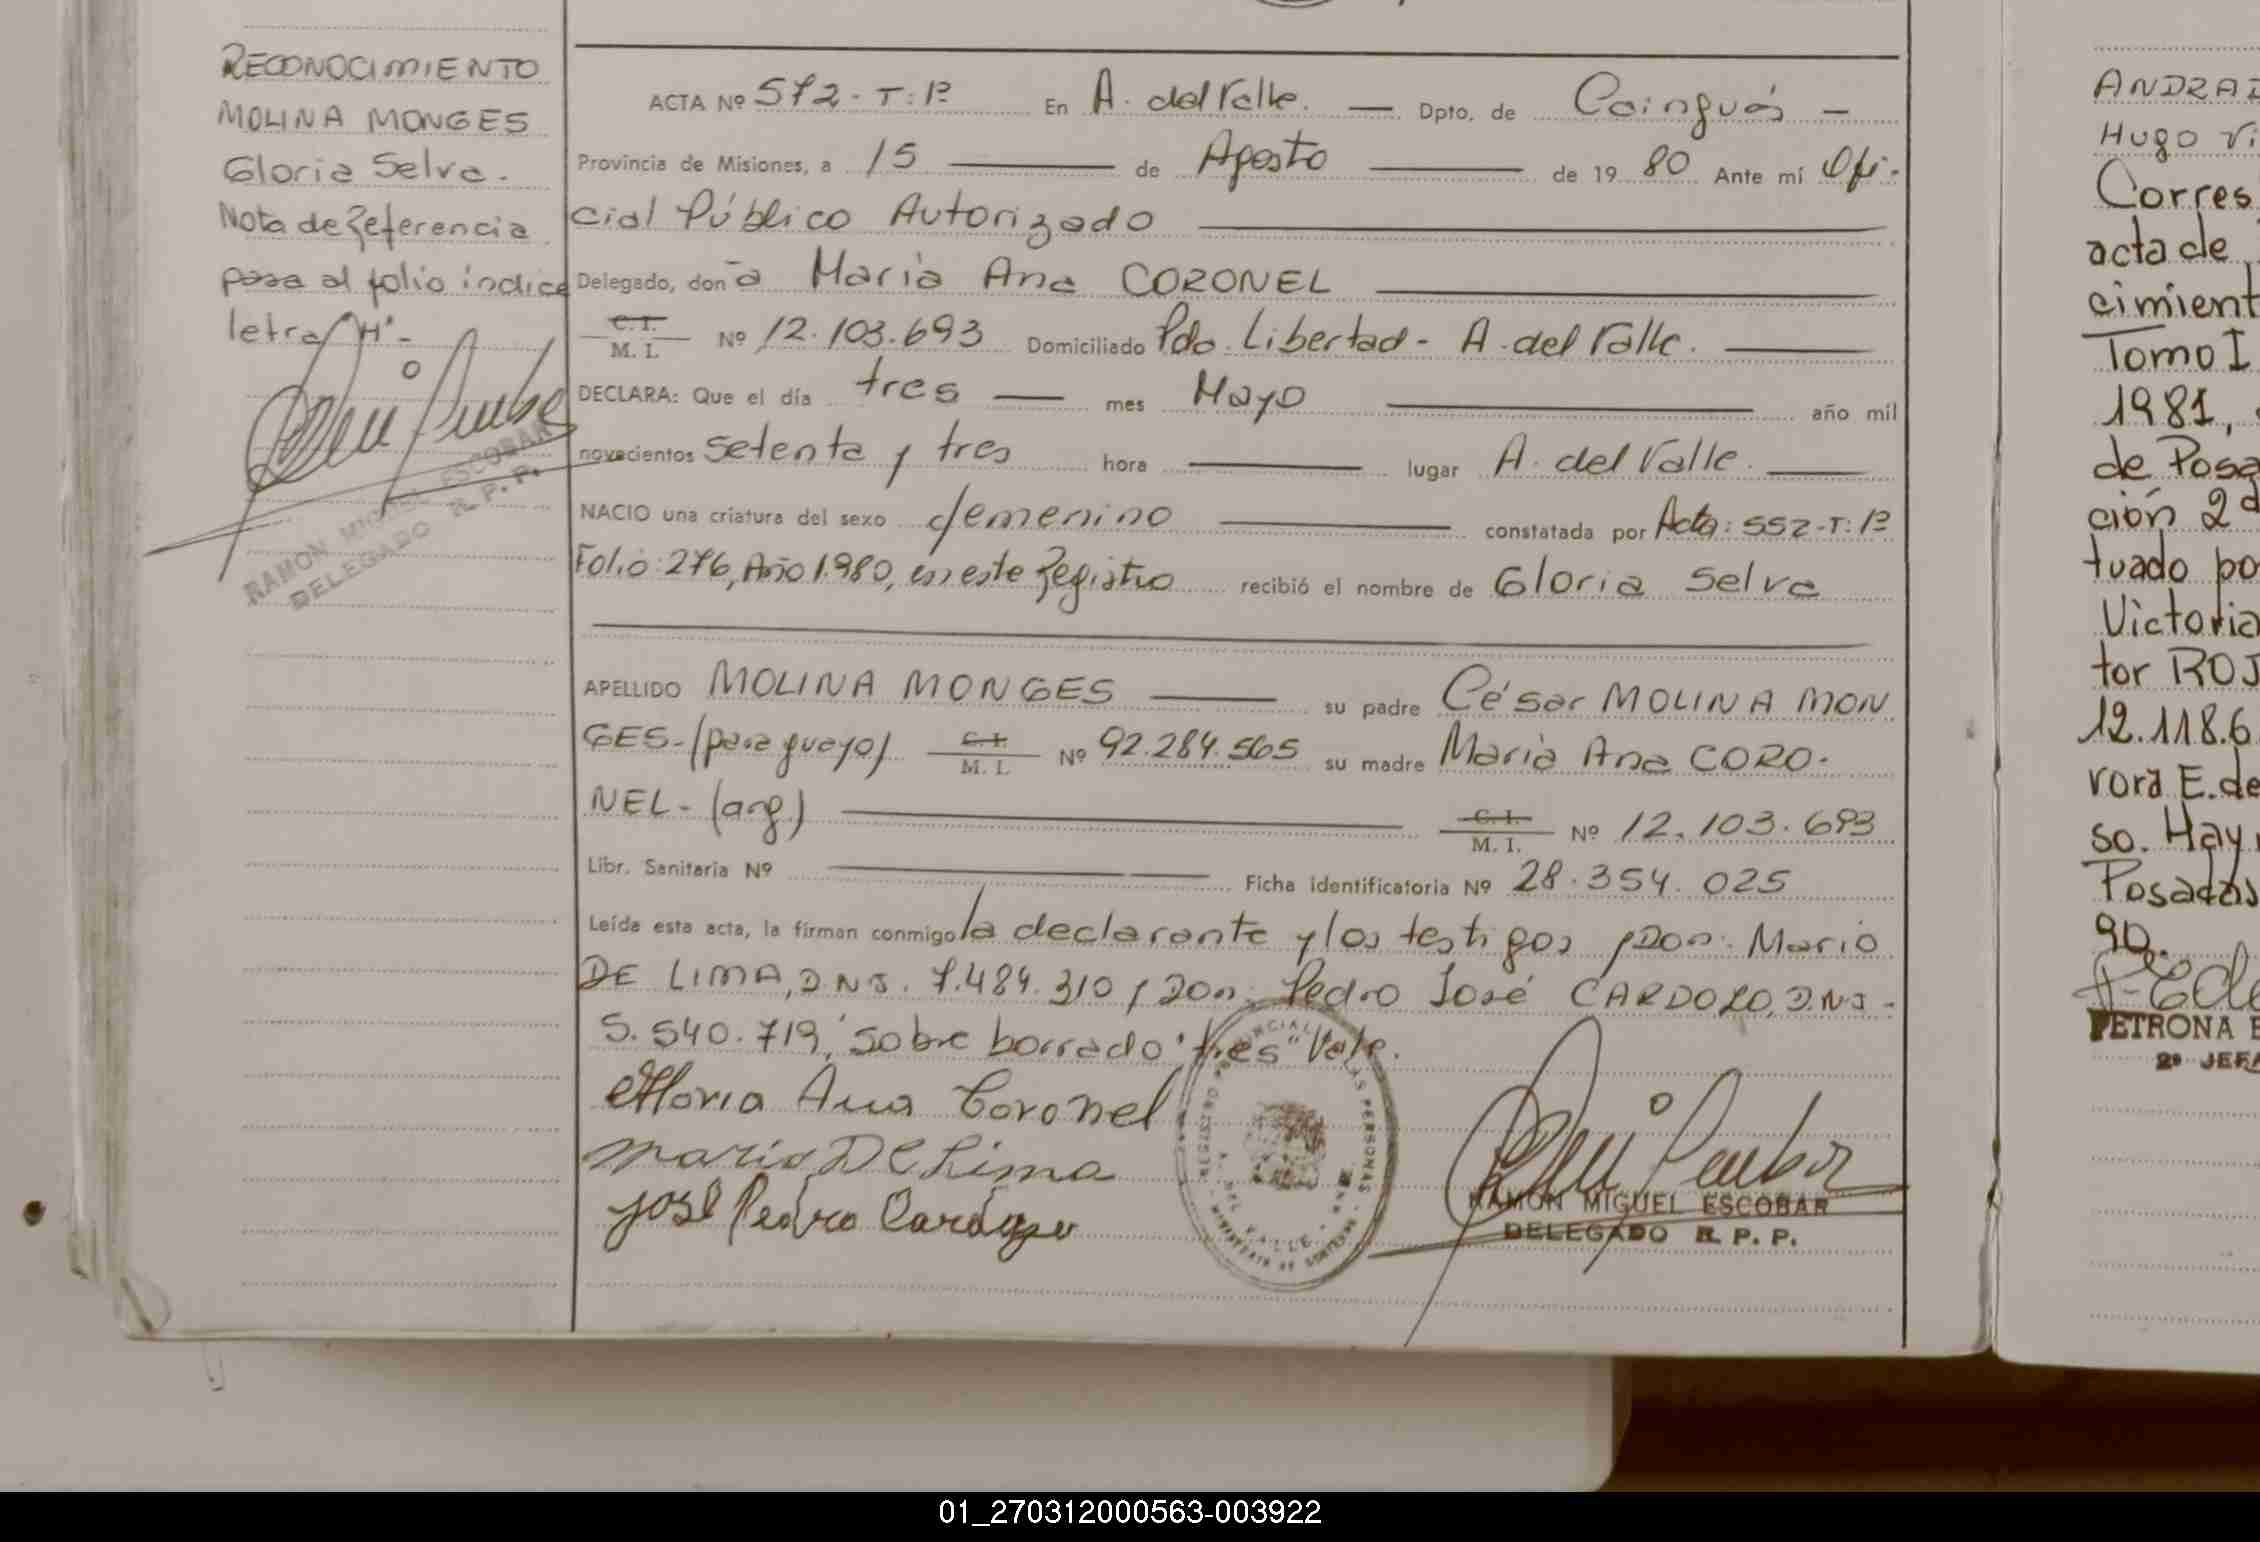 RECONOCIMIENTO
MOLINA MONGES
Gloria Selva.
Nota de Referencia
pasa al folio índice
letra "H"-
RAMON MIGUEL ESCOBAR
DELEGADO R. P. P.
ACTA Nº 572-T:1º En A. del Valle. — Dpto. de Caingués —
Provincia de Misiones, a 15 — de Agosto — de 19 80 Ante mí Ofi-
cial Público Autorizado —
Delegado, don ª María Ana CORONEL —
C.I. M. I. Nº 12.103.693 Domiciliado Pdo. Libertad - A. del Valle. —
DECLARA: Que el día tres — mes Mayo — año mil
novecientos setenta y tres hora — lugar A. del Valle. —
NACIO una criatura del sexo femenino — constatada por Acta: 552-T:1º
Folio: 276, Año 1.980, en este Registro recibió el nombre de Gloria Selva
APELLIDO MOLINA MONGES — su padre César MOLINA MON
GES-(paraguayo) C.I. M. I. Nº 92.284.565 su madre María Ana CORO-
NEL- (arg) — C.I. M. I. Nº 12.103.693
Libr. Sanitaria Nº — Ficha identificatoria Nº 28.354.025
Leída esta acta, la firman conmigo la declarante y los testigos, Don: Mario
DE LIMA, D.N.I. 7.484.310 y Don: Pedro José CARDOZO, D.N.I.-
5.540.719, sobre borrado "tres" Vale.
María Ana Coronel
Mario De Lima
José Pedro Cardozo
RAMON MIGUEL ESCOBAR
DELEGADO R. P. P.
ANDRAD
Hugo Vi
Corres
acta de
cimient
Tomo I
1981,
de Posa
ción 2ª
tuado po
Victoria
tor ROJ
12.118.6
vora E. de
so. Hay
Posadas
90.
PETRONA E
2º JEFA
01_270312000563-003922